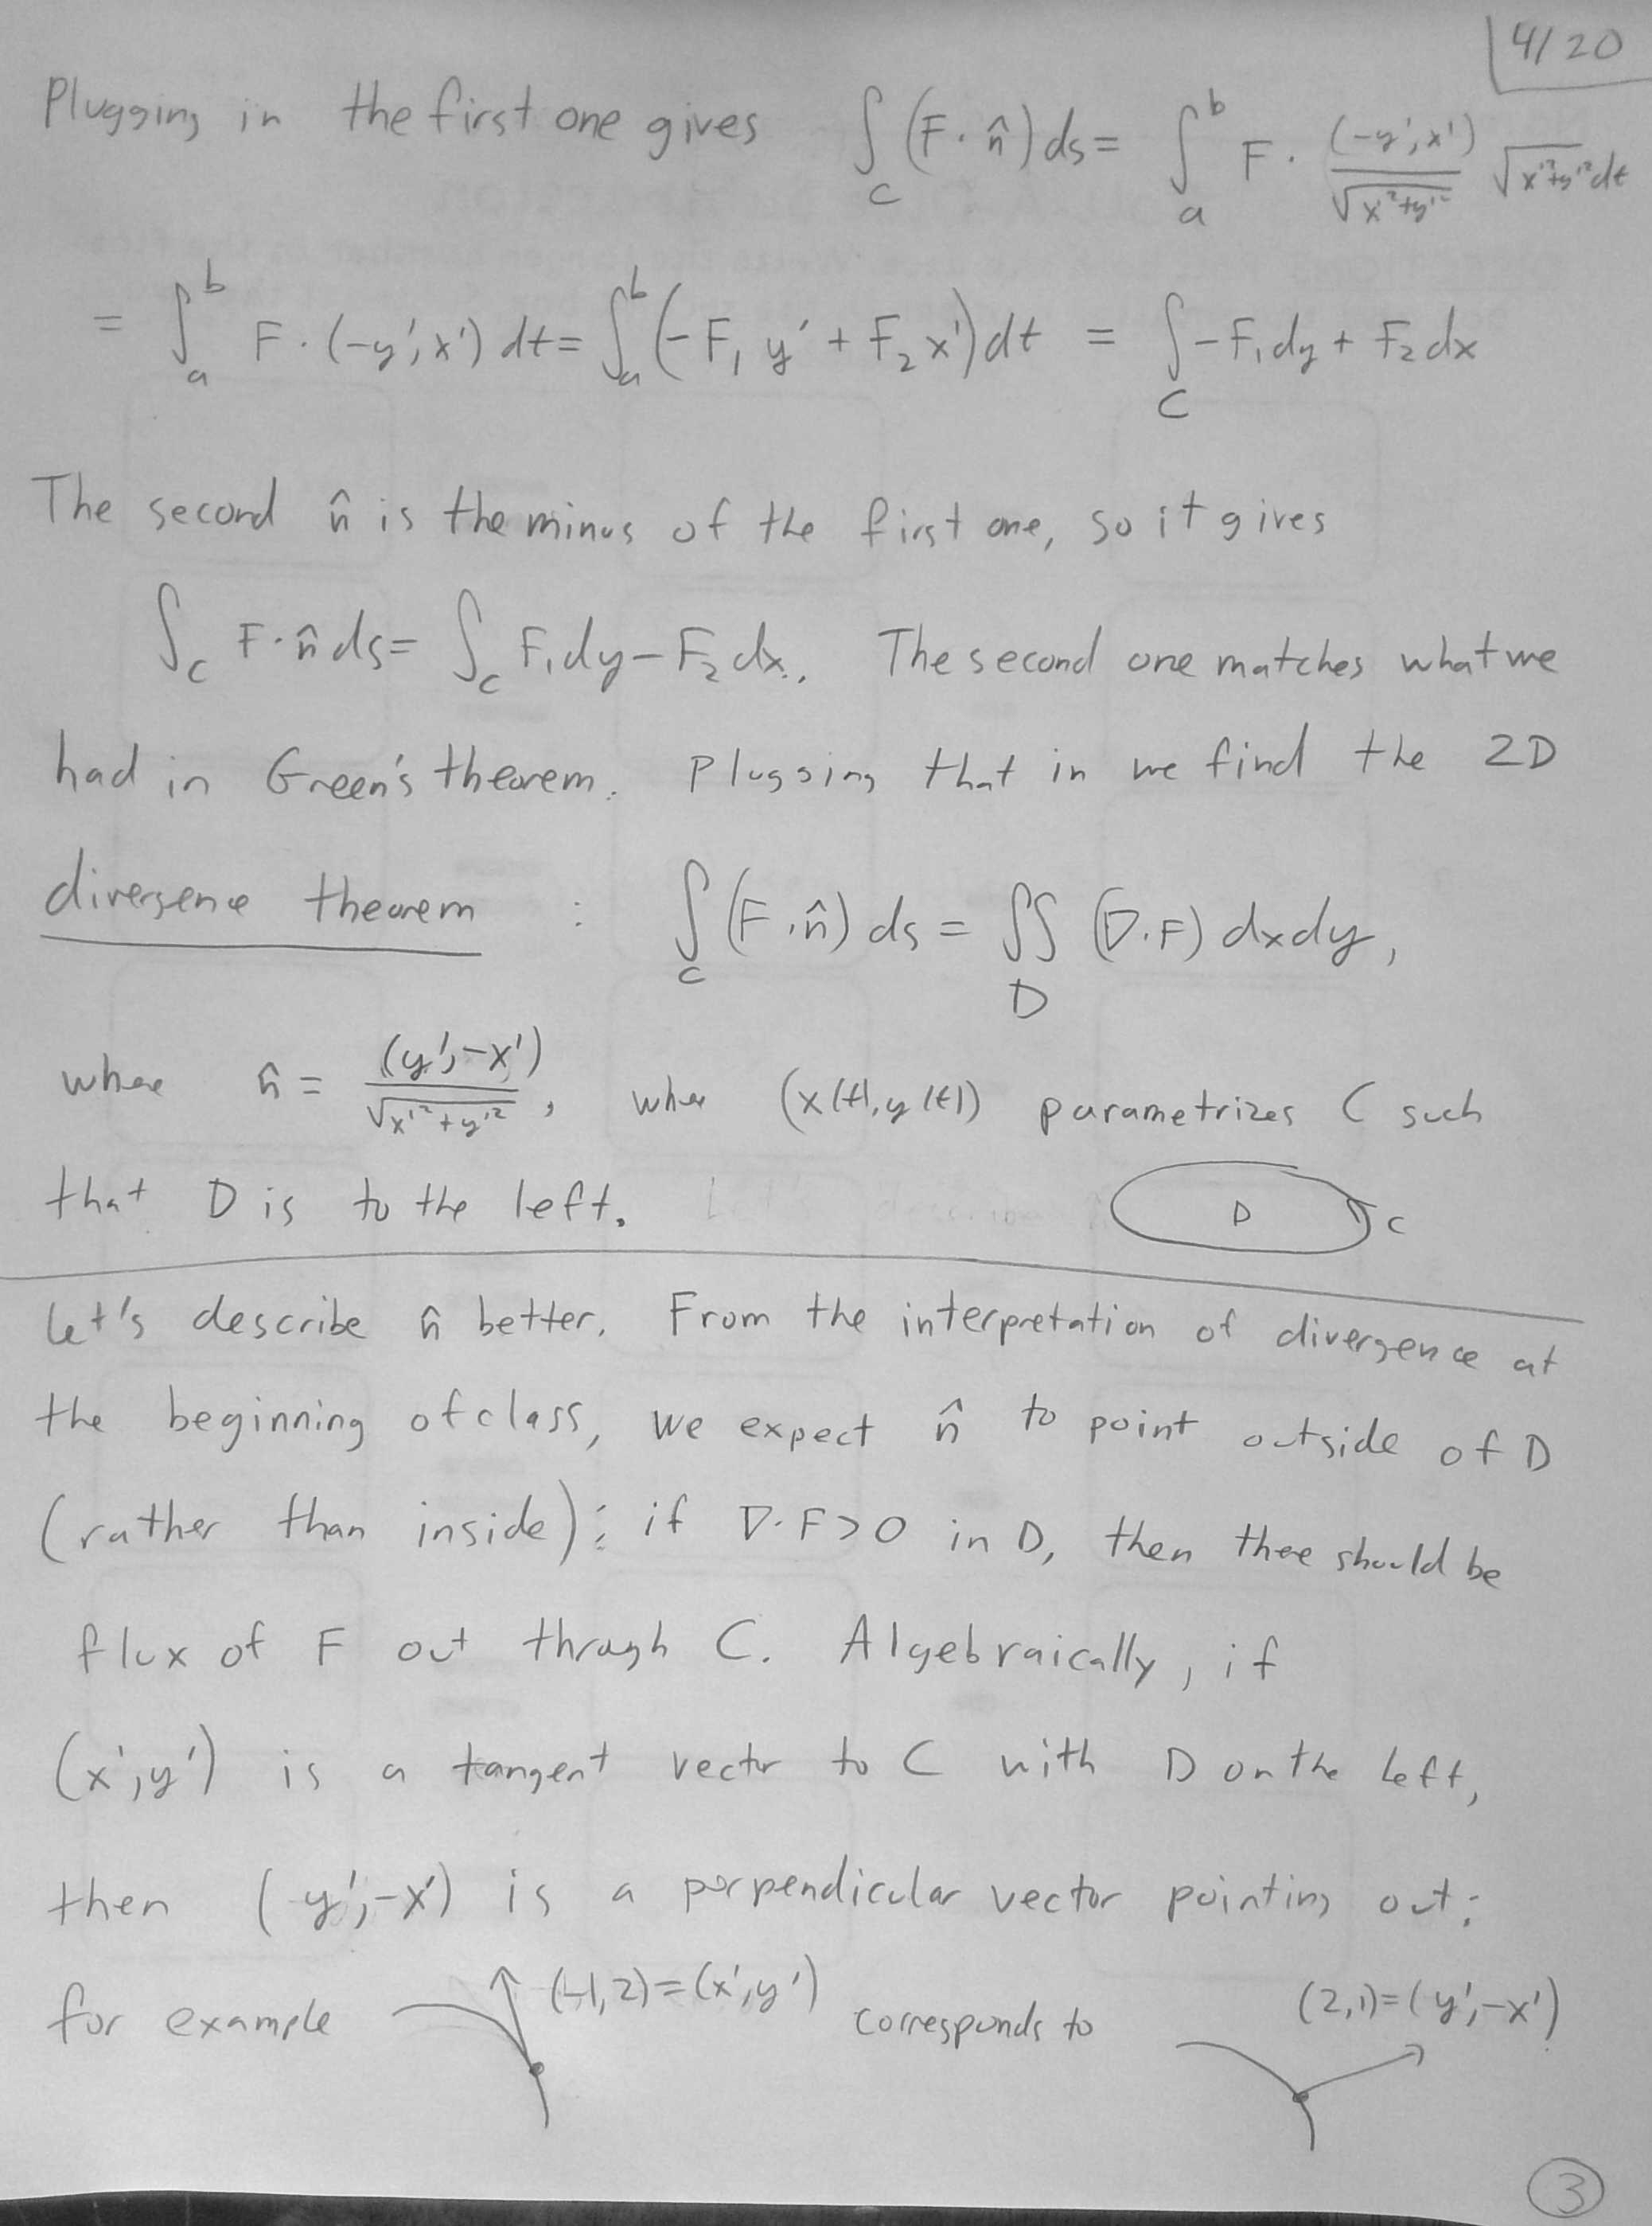 4/20
Plugging in the first one gives ∫_C (F·n̂)ds = ∫_a^b F· (-y',x')/√(x'²+y'²) √(x'²+y'²) dt
= ∫_a^b F·(-y',x') dt = ∫_a^b (-F₁ y' + F₂ x')dt = ∫_C -F₁dy + F₂dx
The second n̂ is the minus of the first one, so it gives
∫_C F·n̂ ds = ∫_C F₁dy - F₂dx. The second one matches what we
had in Green's theorem. Plugging that in we find the 2D
divergence theorem : ∫_C (F·n̂) ds = ∬_D (∇·F) dxdy,
where n̂ = (y',-x')/√(x'²+y'²), where (x(t),y(t)) parametrizes C such
that D is to the left. D C
Let's describe n̂ better. From the interpretation of divergence at
the beginning of class, we expect n̂ to point outside of D
(rather than inside): if ∇·F>0 in D, then there should be
flux of F out through C. Algebraically, if
(x',y') is a tangent vector to C with D on the left,
then (y',-x') is a perpendicular vector pointing out:
for example (-1,2)=(x',y') corresponds to (2,1)=(y',-x')
3